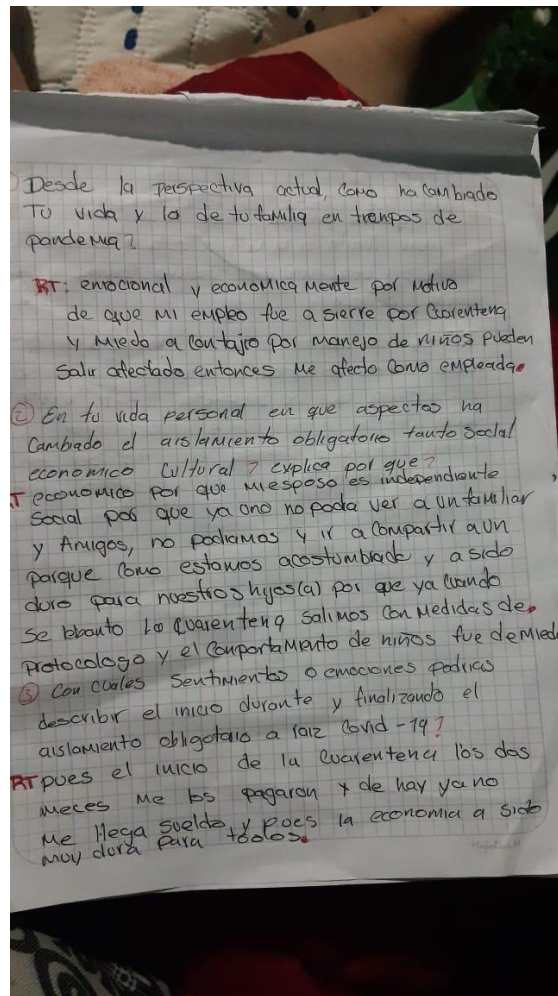 Desde la perspectiva actual, como ha cambiado
Tu vida y la de tu familia en tiempos de
pandemia?
RT: emocional y economica mente por motivo
de que mi empleo fue a sierre por Cuarentena
y miedo a contajio por manejo de niños pueden
Salir afectado entonces me afecto como empleada.
② En tu vida personal en que aspectos ha
Cambiado el aislamiento obligatorio tanto social
economico Cultural? explica por que?
T economico por que mi esposo es independiente
Social por que ya uno no podia ver a un familiar
y Amigos, no podiamos y ir a compartir a un
parque como estamos acostumbrado y a sido
duro para nuestros hijos(a) por que ya cuando
Se levanto La cuarentena salimos con medidas de
protocologo y el comportamiento de niños fue de miedo
③ Con cuales Sentimientos o emociones podrias
describir el inicio durante y finalizando el
aislamiento obligatorio a raiz Covid-19?
RT pues el inicio de la cuarentena los dos
meces me los pagaron y de hay ya no
me llega sueldo y pues la economia a sido
muy dura para todos.